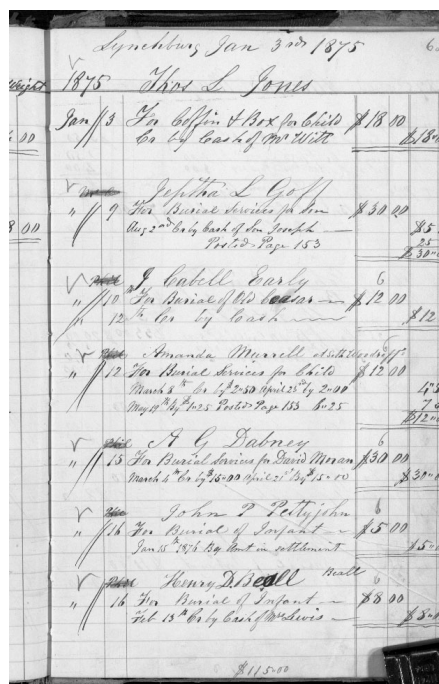 Lynchburg Jan 3rds 1875
1875 Thos L Jones
Jan 3 For Coffin & Box for Child $18 00
Cr by Cash of Mr Witt $18
Jeptha L Goff
" 9 For Burial Services for Son $30 00
Aug 2nd Cr by Cash of Son Joseph — $5
Posted Page 153 25
$30
J Cabell Early 6
" 10 For Burial of Old Ceasar — $12 00
" 12th Cr by Cash — $12
Amanda Murrell at Seth Woodruff's 6
" 12 For Burial Services for Child $12 00
March 8th Cr by $2"50 April 25th by 2"00 4"5
May 19th By $1"25 Posted Page 153 7
$12"
A G Dabney 6
" 15 For Burial Services for David Moran $30 00
March 4th Cr by $15"00 April 21st By $15"00 $30"0
John P Pettyjohn 6
" 16 For Burial of Infant — $5 00
Jan 15th 1876 By Amt in settlement $5"0
Henry D. Beall Beall 6
" 16 For Burial of Infant — $8 00
Feb 13th Cr by Cash of Mr Lewis — $8"
$115"00